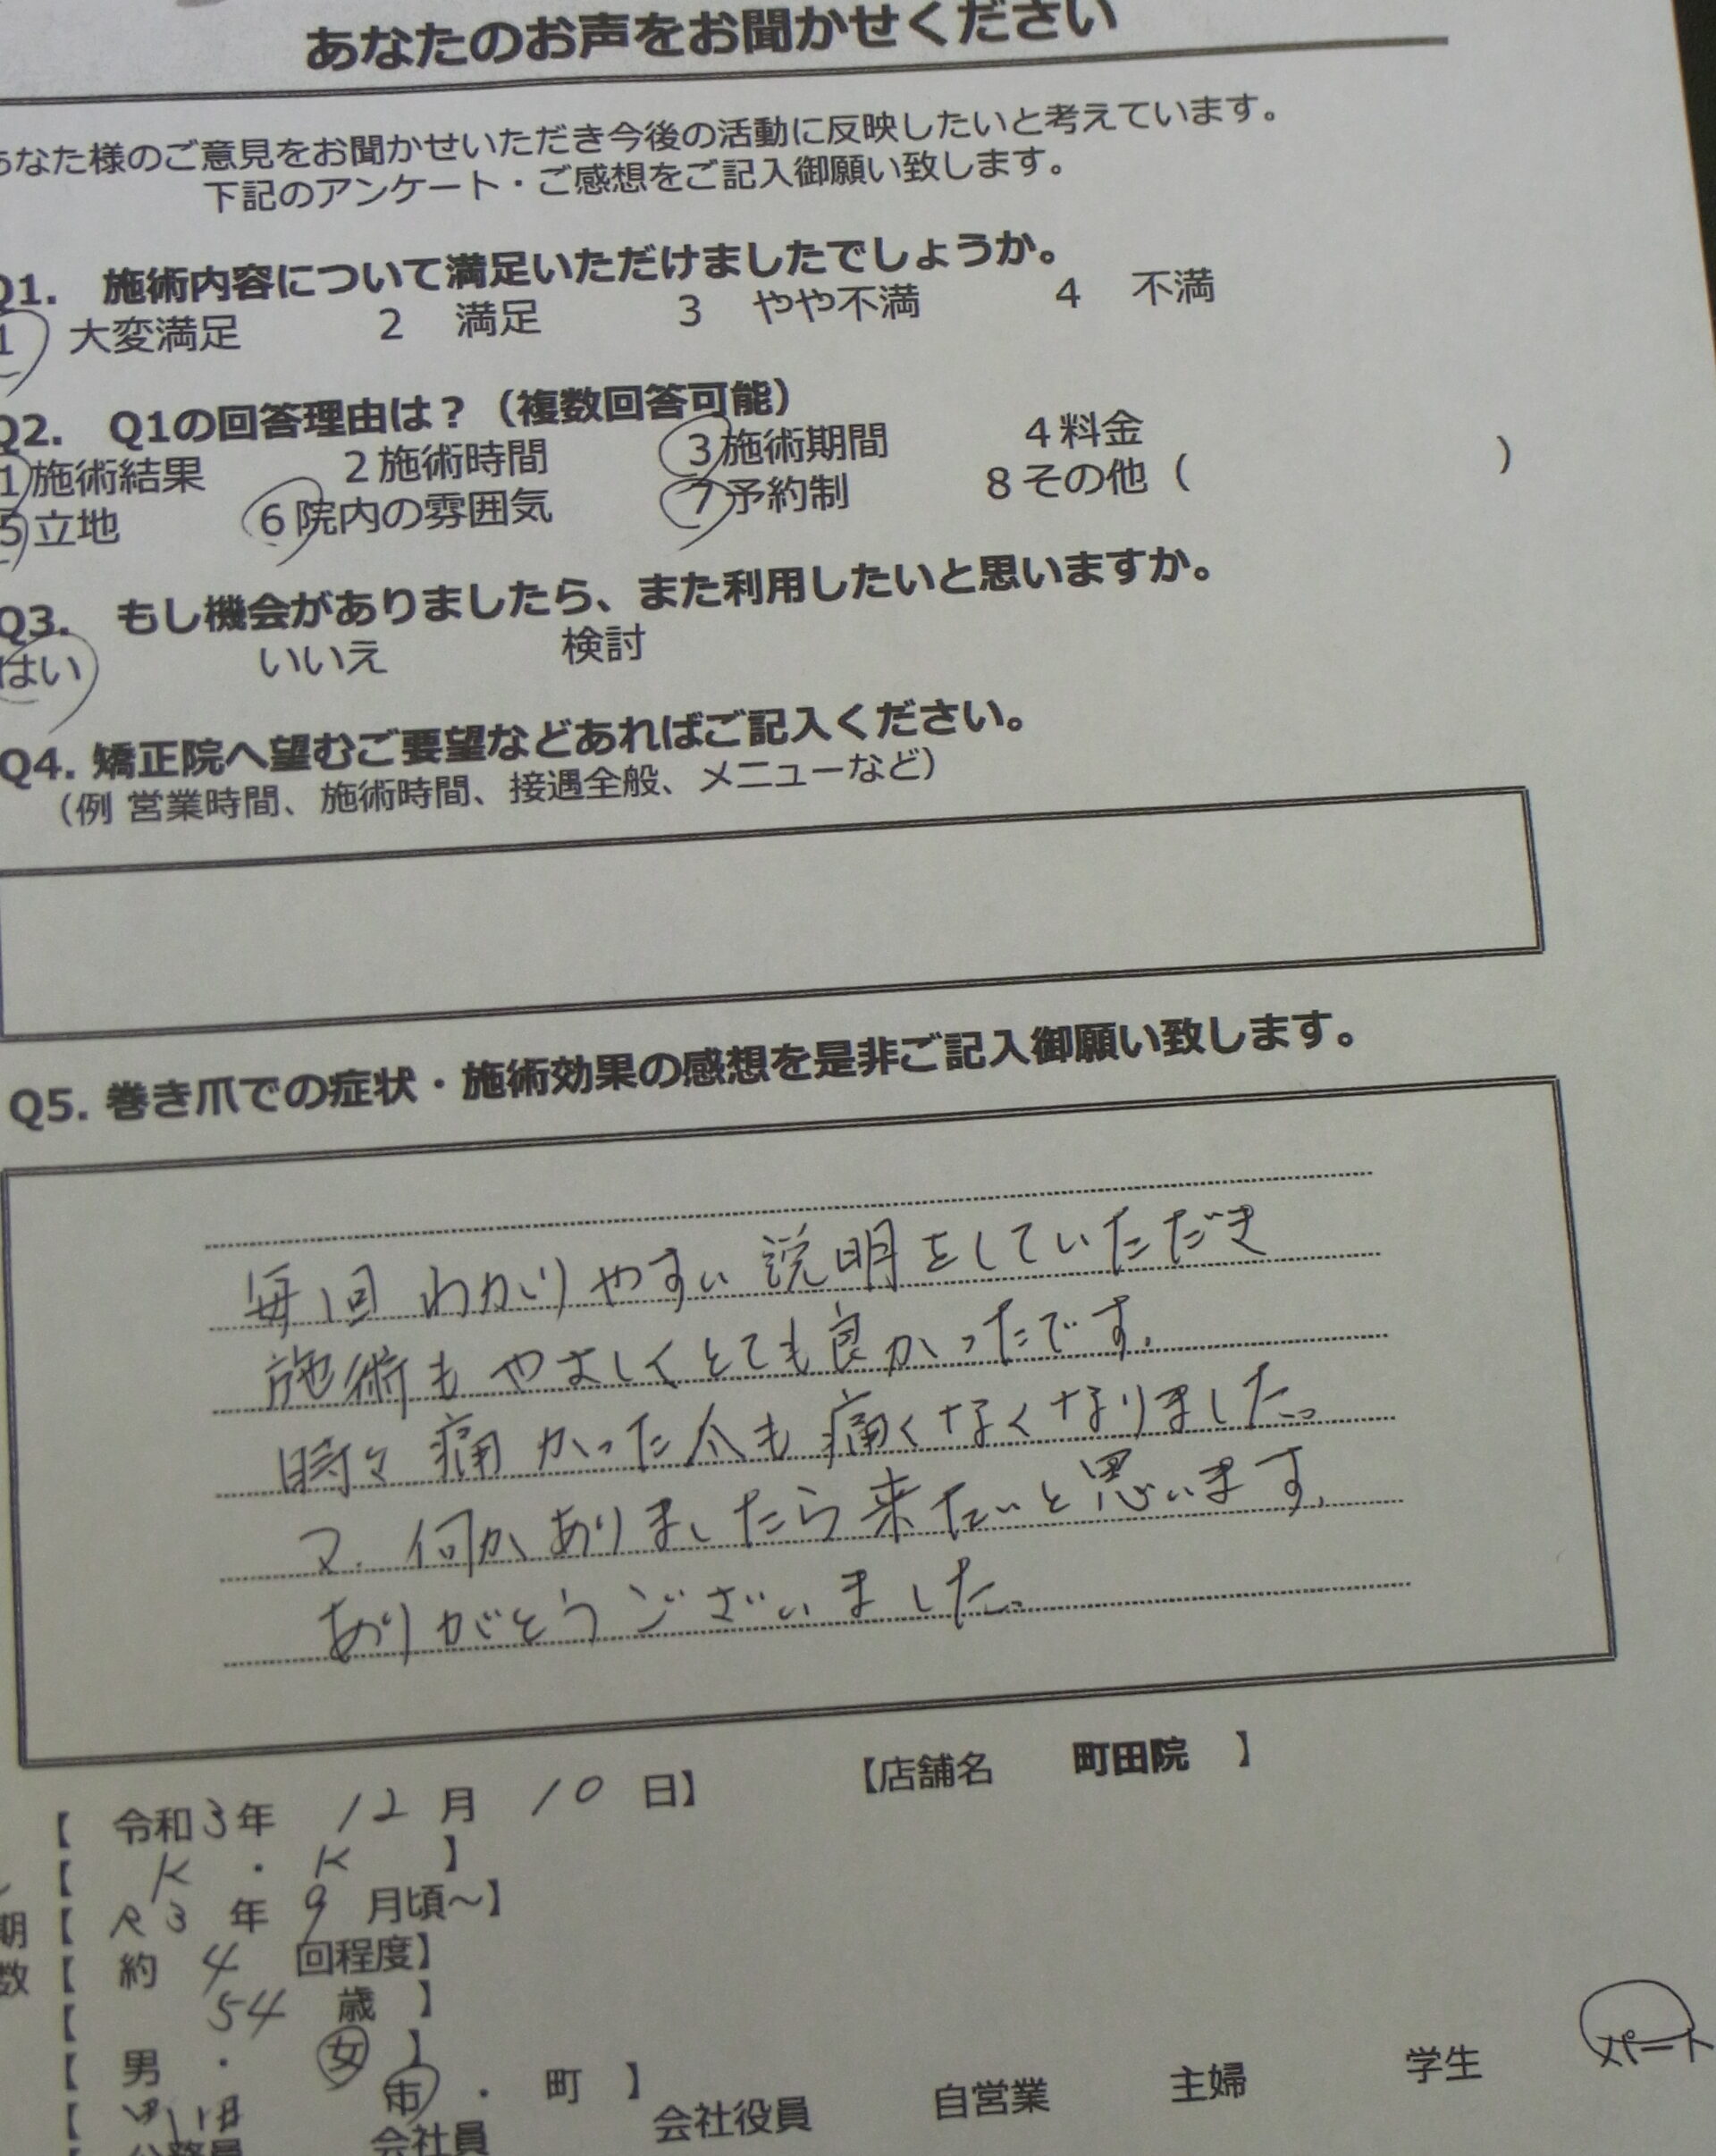 あなたのお声をお聞かせください
あなた様のご意見をお聞かせいただき今後の活動に反映したいと考えています。
下記のアンケート・ご感想をご記入御願い致します。
Q1. 施術内容について満足いただけましたでしょうか。
1 大変満足 2 満足 3 やや不満 4 不満
Q2. Q1の回答理由は？（複数回答可能）
1 施術結果 2 施術時間 3 施術期間 4 料金
5 立地 6 院内の雰囲気 7 予約制 8 その他（ ）
Q3. もし機会がありましたら、また利用したいと思いますか。
はい いいえ 検討
Q4. 矯正院へ望むご要望などあればご記入ください。
（例 営業時間、施術時間、接遇全般、メニューなど）
Q5. 巻き爪での症状・施術効果の感想を是非ご記入御願い致します。
毎回 わかりやすい説明をしていただき
施術もやさしくとても良かったです。
時々痛かった爪も痛くなくなりました。
又、何かありましたら来たいと思います。
ありがとうございました。
【 令和3年 12月 10日】 【店舗名 町田院 】
【 K ・ K 】
期【 R3 年 9 月頃～】
数【 約 4 回程度】
【 54 歳 】
【 男 ・ 女 】
【 市 ・ 町 】
【 公務員 会社員 会社役員 自営業 主婦 学生 パート